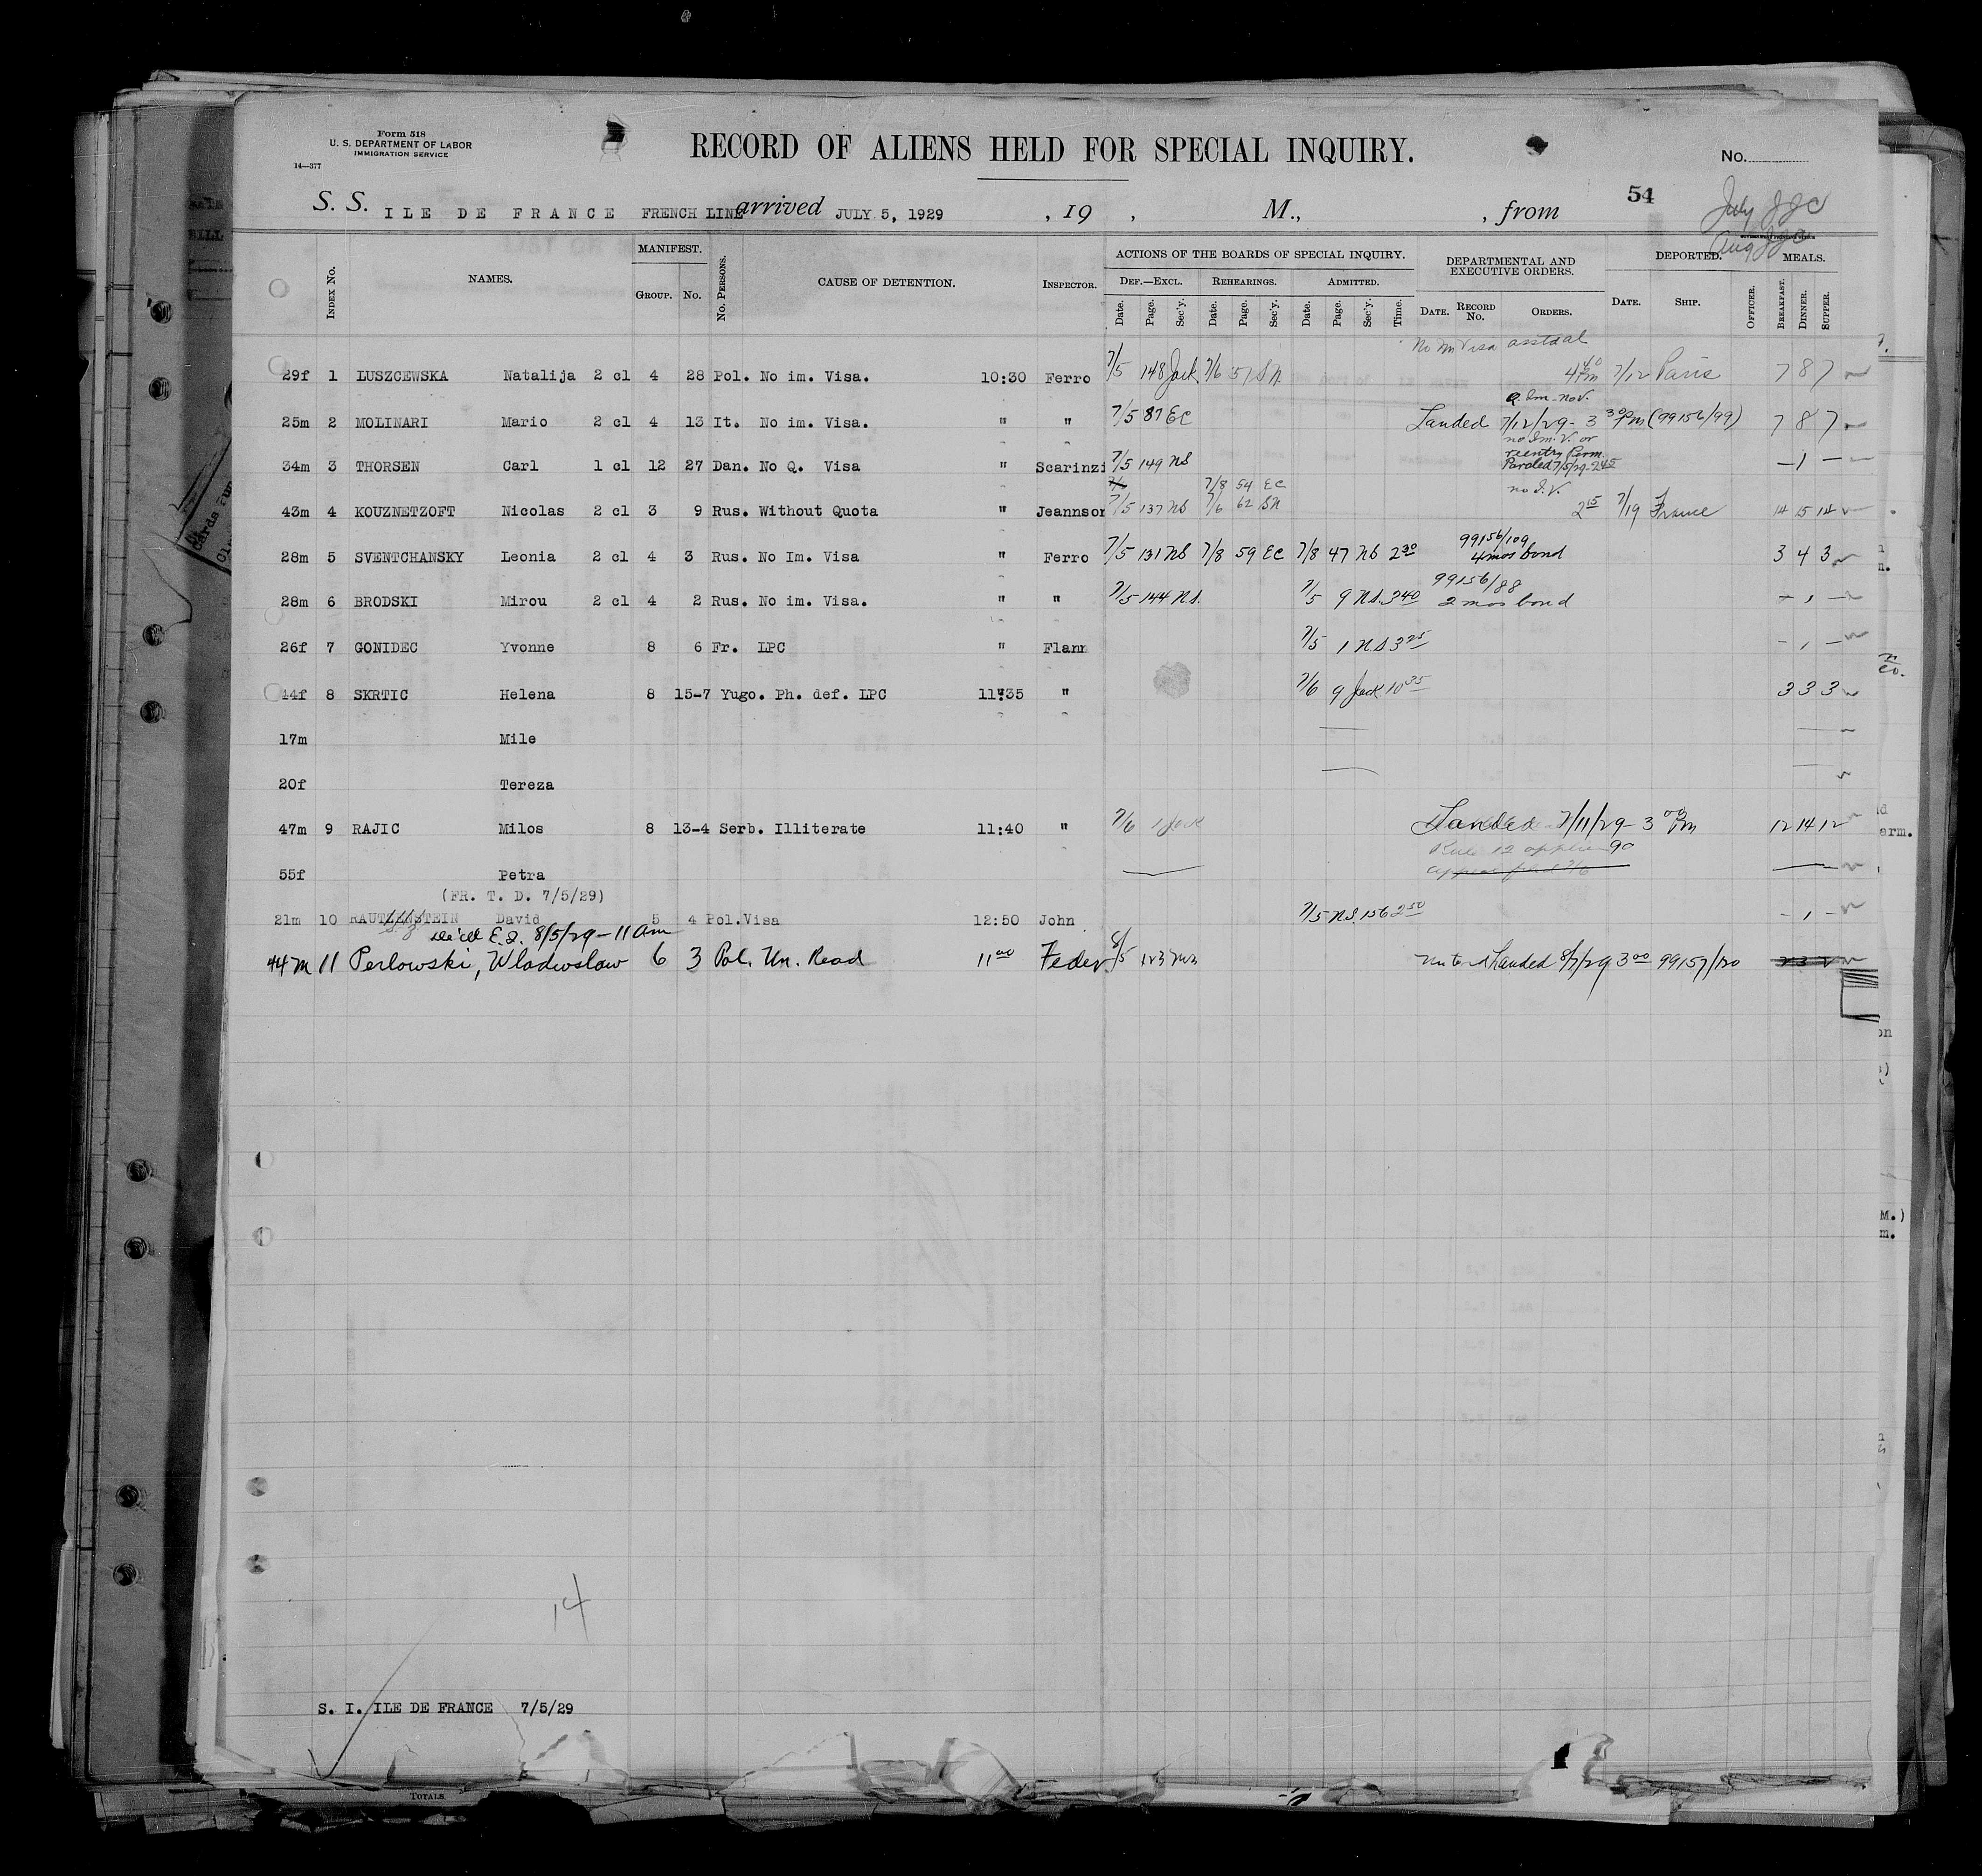 Form 518
U. S. DEPARTMENT OF LABOR
IMMIGRATION SERVICE
14—377
RECORD OF ALIENS HELD FOR SPECIAL INQUIRY.
No.
54
S. S. ILE DE FRANCE FRENCH LINE arrived JULY 5, 1929 , 19 , M., , from
July JJC
Aug JJC
INDEX NO. NAMES. MANIFEST. GROUP. NO. NO. PERSONS. CAUSE OF DETENTION. INSPECTOR. ACTIONS OF THE BOARDS OF SPECIAL INQUIRY. DEPARTMENTAL AND EXECUTIVE ORDERS. DEPORTED. MEALS.
DEF.—EXCL. REHEARINGS. ADMITTED.
Date. Page. Sec'y. Date. Page. Sec'y. Date. Page. Sec'y. Time. DATE. RECORD NO. ORDERS. DATE. SHIP. OFFICER. BREAKFAST. DINNER. SUPPER.
No Im Visa
29f 1 LUSZCEWSKA Natalija 2 cl 4 28 Pol. No im. Visa. 10:30 Ferro 7/5 148 Jack 7/6 51 SN 4 40 Pm 7/12 Paris 7 8 7
Q. Im. no V.
25m 2 MOLINARI Mario 2 cl 4 13 It. No im. Visa. " " 7/5 87 EC Landed 7/12/29 - 3 30 Pm (99156/99) 7 8 7
no Im. V. or
reentry Perm
34m 3 THORSEN Carl 1 cl 12 27 Dan. No Q. Visa " Scarinzi 7/5 149 NS Paroled 7/5/29 - 2 45 – 1 –
7/8 54 EC no I. V.
43m 4 KOUZNETZOFT Nicolas 2 cl 3 9 Rus. Without Quota " Jeannson 7/5 137 NS 7/6 62 SN 2 15 7/19 France 14 15 14
99156/109
28m 5 SVENTCHANSKY Leonia 2 cl 4 3 Rus. No Im. Visa " Ferro 7/5 131 NS 7/8 59 EC 7/8 47 NS 2 30 4 mos bond 3 4 3
99156/88
28m 6 BRODSKI Mirou 2 cl 4 2 Rus. No im. Visa. " " 7/5 144 N.S. 7/5 9 N.S. 3 40 2 mos bond – 1 –
26f 7 GONIDEC Yvonne 8 6 Fr. LPC " Flann 7/5 1 NS 3 25 – 1 –
44f 8 SKRTIC Helena 8 15-7 Yugo. Ph. def. LPC 11:35 " 7/6 9 Jack 10 35 3 3 3
17m Mile
20f Tereza
47m 9 RAJIC Milos 8 13-4 Serb. Illiterate 11:40 " 7/6 1 Jack Landed 7/11/29 - 3 00 Pm 12 14 12
Rule 12 applies 90
55f Petra
(FR. T. D. 7/5/29)
21m 10 RAUTZENSTEIN David 5 4 Pol. Visa 12:50 John 7/5 N.S. 156 2 50 – 1 –
E.I. 8/5/29 - 11 am
44 m 11 Perlowski, Wladwslaw 6 3 Pol. Un. Read 11 00 Feder 8/5 123 Landed 8/7/29 3 00 99157/120
14
S. I. ILE DE FRANCE 7/5/29
TOTALS.